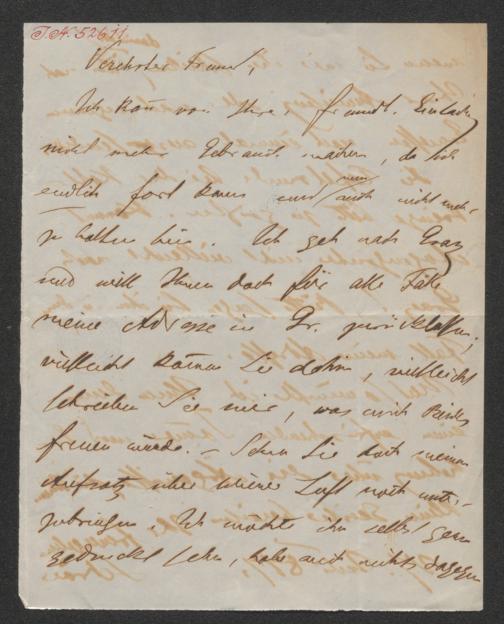 J.N. 52611
Verehrter Freund,
Ich kann von Ihrer freundl. Einladung
nicht mehr Gebrauch machen, da ich
endlich fort kann und nun auch nicht mehr
zu halten bin. Ich geh nach Graz
und will Ihnen doch für alle Fälle
meine Adresse in Gr. zurücklassen;
vielleicht kommen Sie dahin, vielleicht
schreiben Sie mir, was mich
freuen würde. – Sehen Sie doch meinen
Aufsatz über Wiener Luft noch unter-
zubringen. Ich möcht ihn selbst gern
gedruckt sehn, habe auch nichts dagegen